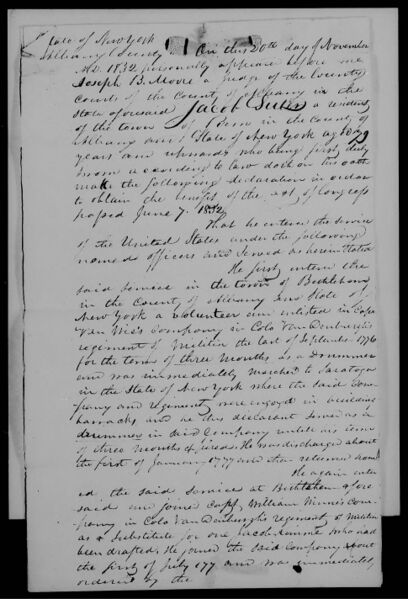 State of New York
Albany County } On this 20th day of November
AD. 1832 personally appeared before me
Joseph B. Moore a judge of the County
Courts of the County of Albany in the
State aforesaid Jacob a resident
of the town of Bern in the County of
Albany and State of New York aged 72
years and upwards who being first duly
sworn according to law doth on his oath
make the following declaration in order
to obtain the benefit of the act of Congress
passed June 7. 1832
That he entered the service
of the United States under the following
named officers and served as herein stated
He first entered the
said service in the town of Bethlehem
in the County of Albany and State of
New York a volunteer and enlisted in Capt
Van Wie's Company in Colo Van Denburgh's
regiment of Militia the last of September 1776
for the term of three months as a Drummer
and was immediately marched to Saratoga
in the State of New York where the said Com
pany and regiment were engaged in building
barracks and he this declarant served as a
drummer in said Company untill his term
of three months expired. He was discharged about
the first of January 1777 and then returned home
He again enter
ed the said service at Bethlehem afore
said and joined Capt. William Winne's Com
pany in Colo Van Denburghs regiment of Militia
as a substitute for one Jacob who had
been drafted. He joined the said Company about
the first of July 177 and was immediately
ordered by the